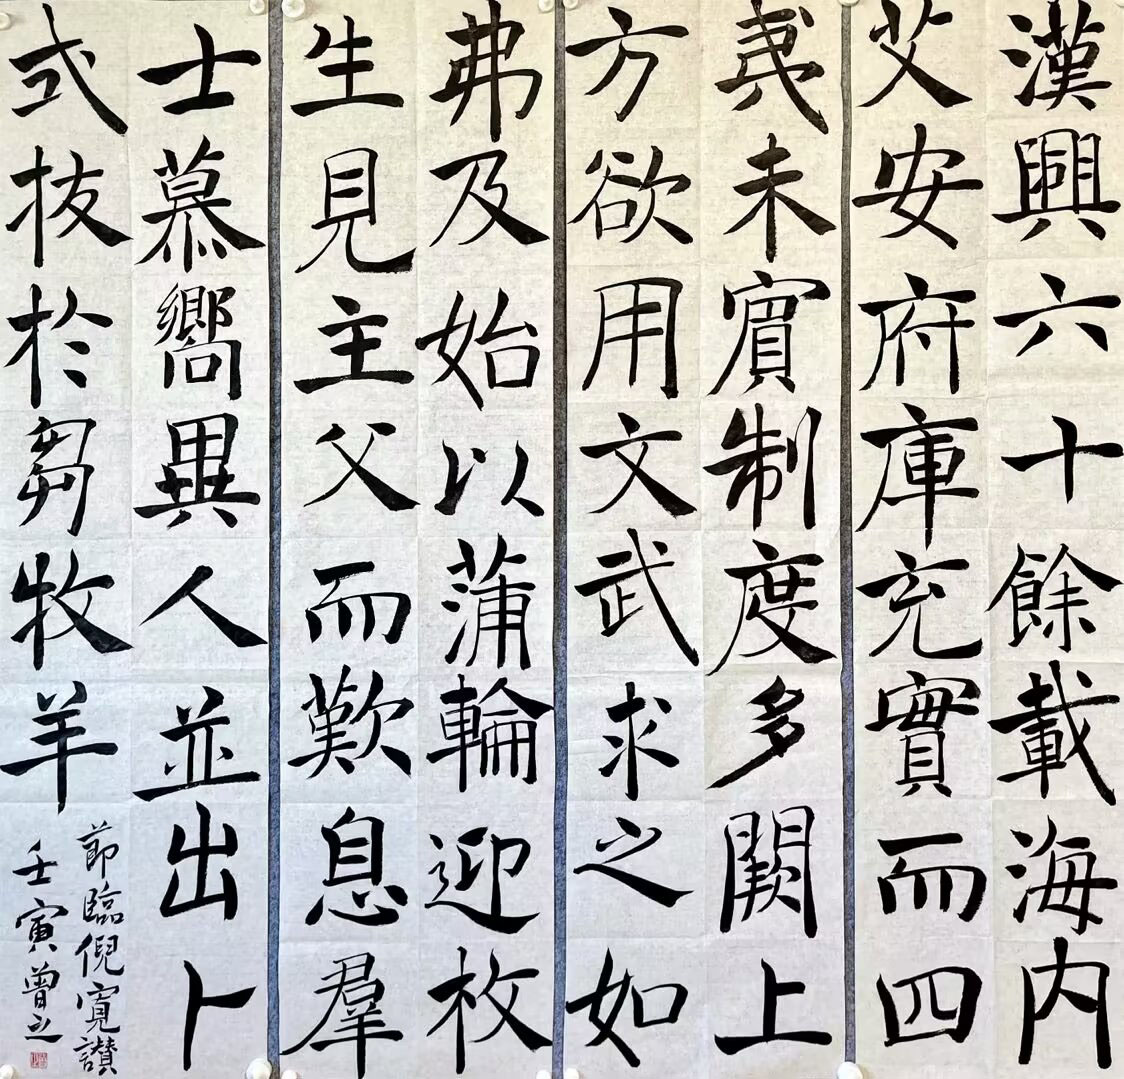 漢興六十餘載海內
艾安府庫充實而四
夷未賓制度多闕上
方欲用文武求之如
弗及始以蒲輪迎枚
生見主父而歎息羣
士慕嚮異人並出卜
式拔於芻牧羊
節臨倪寬讚
壬寅曾